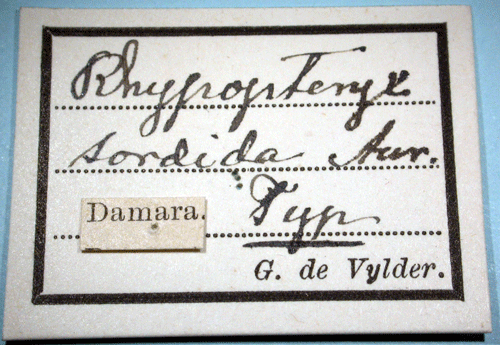 Rhypopteryx
sordida Aur.
Damara. Typ
G. de Vylder.